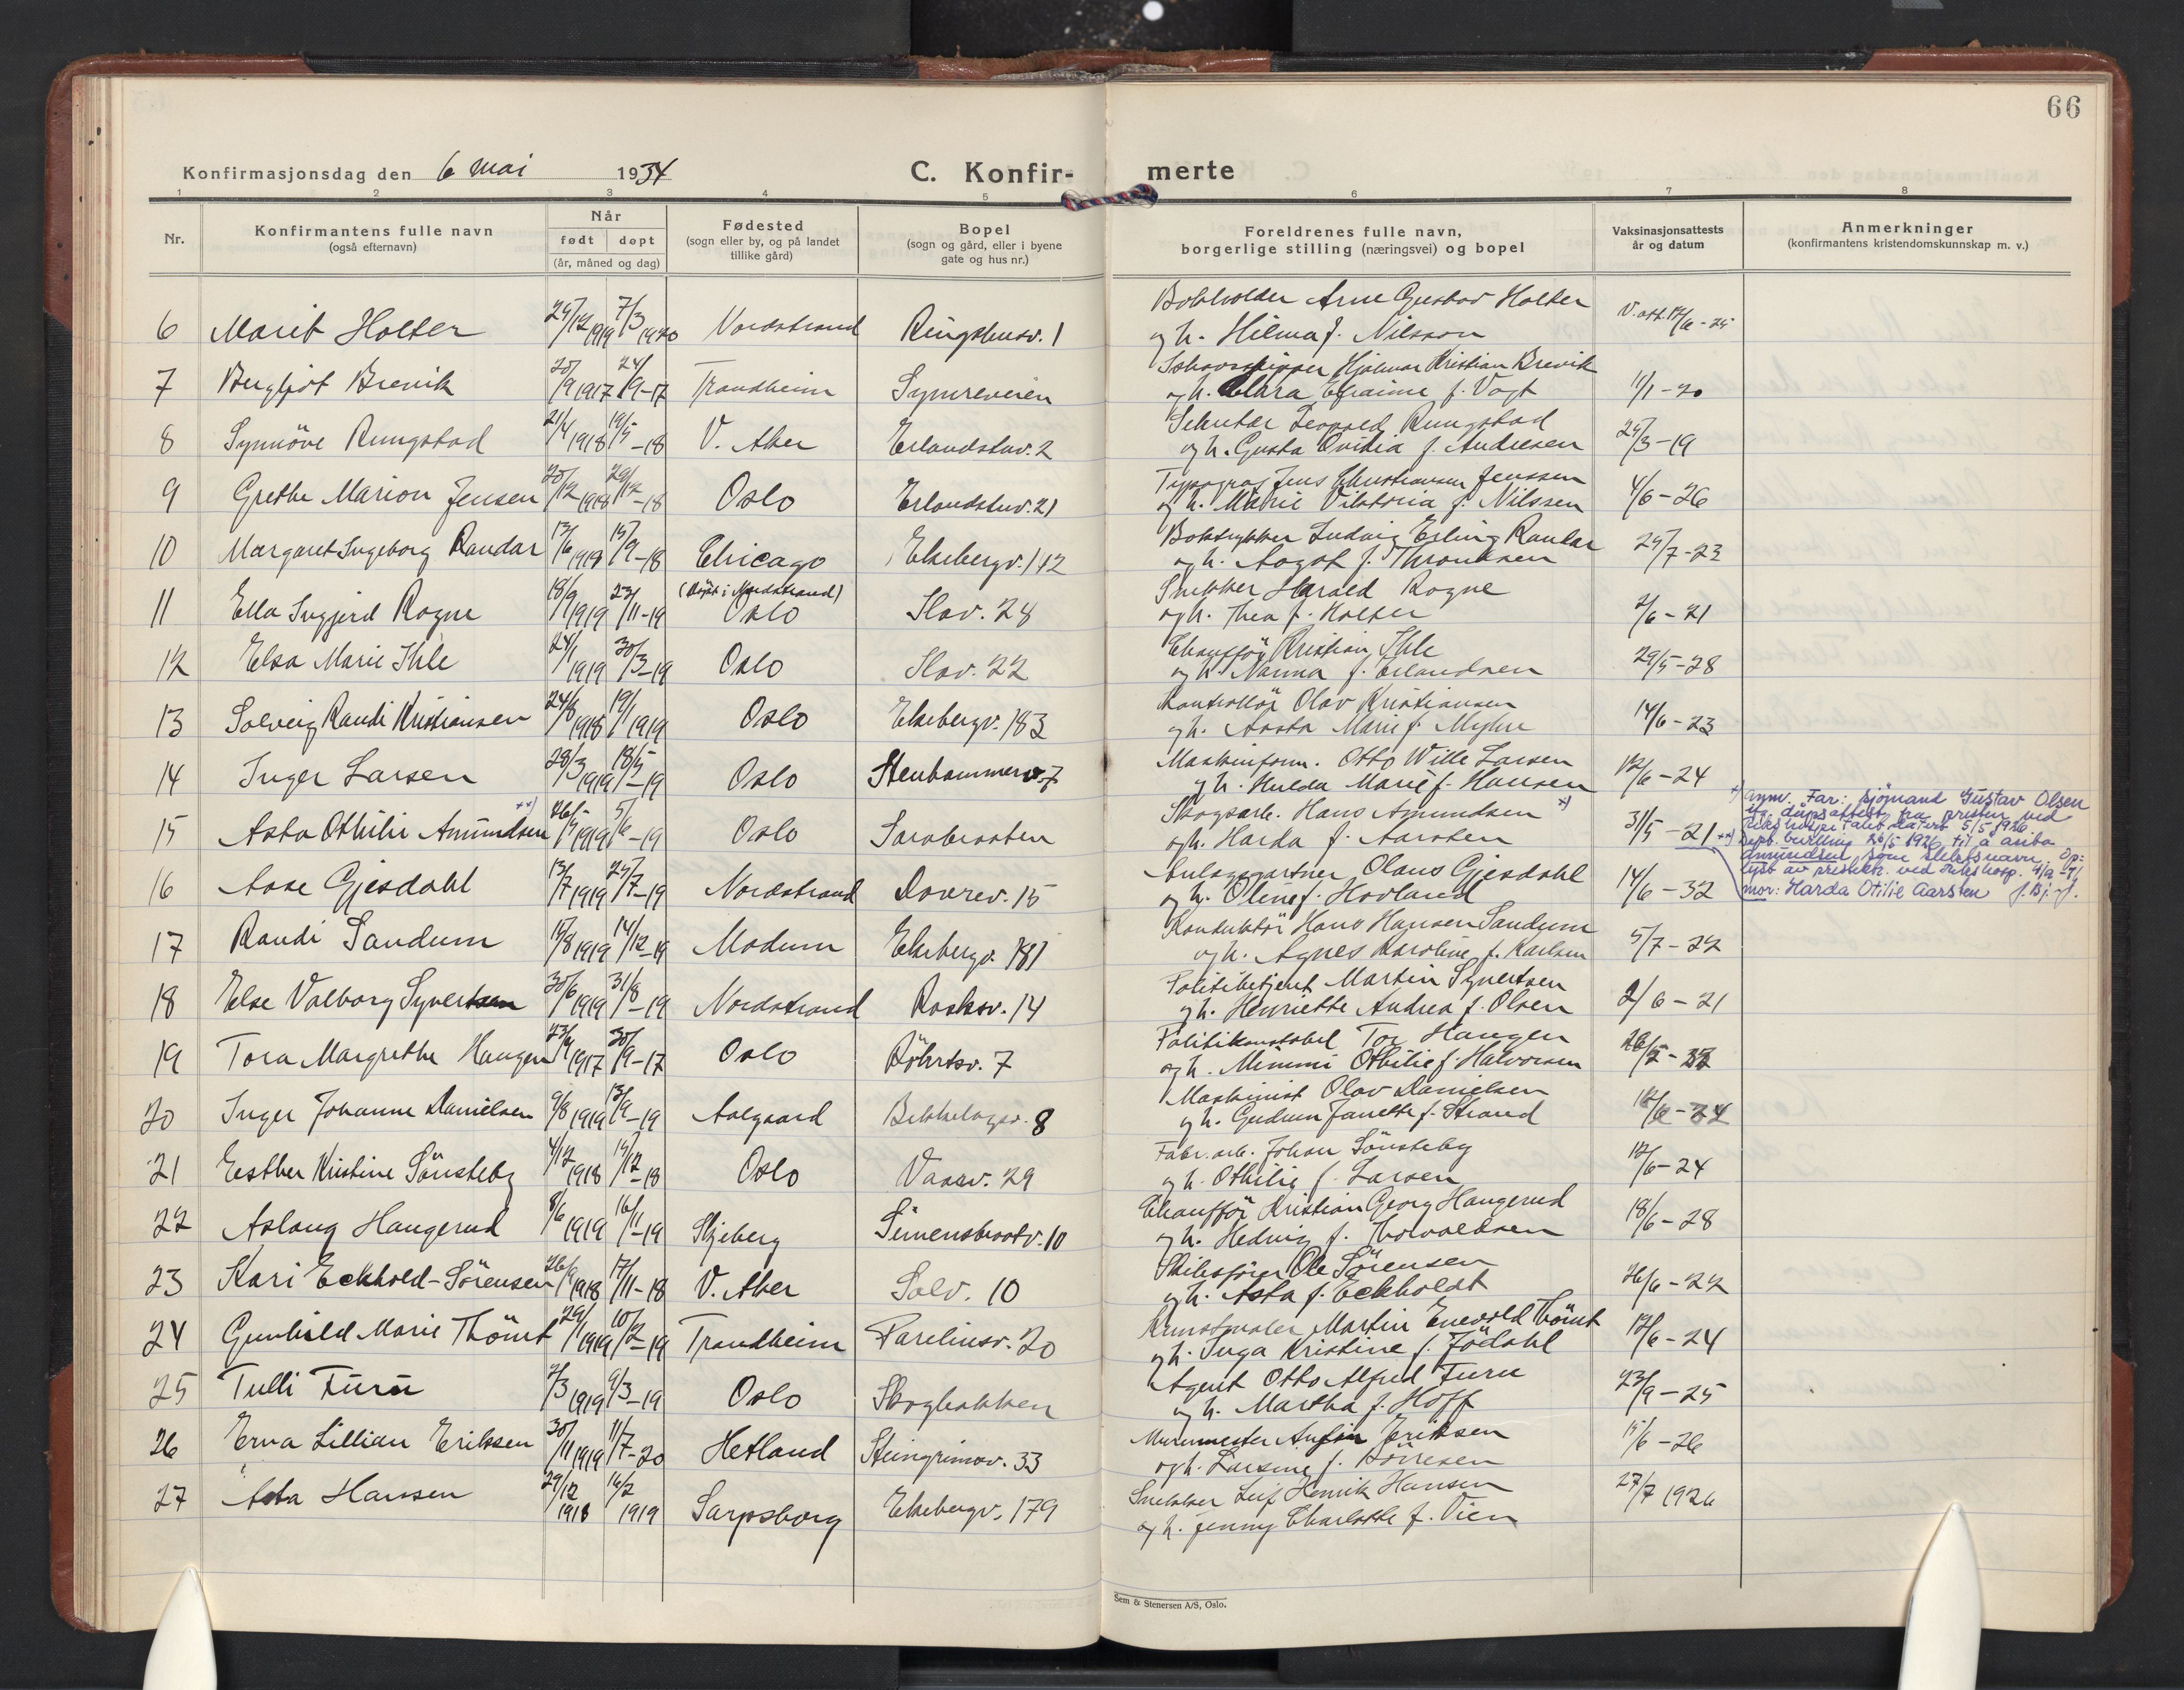 66
Konfirmasjonsdag den 6 mai 1934
C. Konfir-
merte
1 2 3 4 5 6 7 8
Nr.
Konfirmantens fulle navn
(også efternavn)
Når
født døpt
(år, måned og dag)
Fødested
(sogn eller by, og på landet
tillike gård)
Bopel
(sogn og gård, eller i byene
gate og hus nr.)
Foreldrenes fulle navn,
borgerlige stilling (næringsvei) og bopel
Vaksinasjonsattests
år og datum
Anmerkninger
(konfirmantens kristendomskunnskap m. v.)
6 Marit Holter 1919 7/3 1920 Nordstrand Ringshusv. 1
Bokholder Arne Gustav Holter
og h. Hilma f. Nilsson
7 Bergljot Brevik /9 1917 24/9-17 Trondheim Symreveien
Hjalmar Kristian Brevik
og h. Clara f. Vogt 11/1-20
8 Synnöve Rungstad 21/4 1918 19/5-18 V. Aker Erlandstuv. 2
Leopold Rungstad
og h. Gusta f. Andresen 25/3-19
9 Grethe Marion Jensen 20/12 1918 29/12-18 Oslo Erlandstuv. 21
Typograf Jens Christiansen Jenssen
og h. Marie Viktoria f. Nilssen 4/6-26
10 Margaret Ingeborg Randar 13/6 1918 15/9-18 Chicago Ekebergv. 142
Boktrykker Ludvig Erling Randar
og h. Aagot f. Throndsen 24/7-23
11 Ella Ingjerd Rogne 18/9 1919 23/11-19 (Döpt i Nordstrand) Oslo Slov. 24
Snekker Harald Rogne
og h. Thea f. Holter 2/6-21
12 Elsa Marie Ihle 24/1 1919 30/3-19 Oslo Slov. 22
Chaufför Kristian Ihle
og h. Nanna f. Erlandsen 29/5-28
13 Solveig Randi Kristiansen 24/8 1918 19/1 1919 Oslo Ekebergv. 183
Kontrollör Olav Kristiansen
og h. Aasta Marie f. Myhre 14/6-23
14 Inger Larsen 28/3 1919 18/5-19 Oslo Stenhammerv. 7
Maskinform. Otto Wille Larsen
og h. Hulda Marie f. Hansen 12/6-24
15 Asta Othilie Amundsen xx) 26/5 1919 5/6-19 Oslo Sarabraaten
Skogsarb. Hans Amundsen x)
og h. Harda f. Aarsten 31/5-21
x) anm. Far: sjömand Gustav Olsen
ifg. dåpsattest fra presten ved
Rikshospitalet datert 5/5 1926
xx) Dept. bevilling 26/5 1926 til å anta
Amundsen som slektsnavn. Op-
lyst av prestektr. ved Rikshosp. 4/9 -41
mor: Harda Otilie Aarsten f. Bj. f.
16 Aase Gjesdahl 13/7 1919 27/7-19 Nordstrand Dovrev. 15
Anlagsgartner Olaus Gjesdahl
og h. Oline f. Hovland 14/6-32
17 Randi Sandum 15/8 1919 14/12-19 Modum Ekebergv. 181
Konduktör Hans Hansen Sandum
og h. Agnes Karoline f. Karlsen 5/7-22
18 Else Valborg Syvertsen 30/6 1919 31/8-19 Nordstrand Raskov. 14
Politibetjent Martin Syvertsen
og h. Henriette Andrea f. Olsen 2/6-21
19 Tora Margrethe Haugen 1917 30/9-17 Oslo Röhrtsv. 7
Politikonstabel Tor Haugen
og h. Mimmi Othilie f. Halvorsen
20 Inger Johanne Danielsen 9/8 1919 13/9-19 Aalgaard Bekkelagsv. 8
Maskinist Olav Danielsen
og h. Gudrun Janette f. Strand 12/6-24
21 Esther Kristine Sönsteby 4/12 1918 15/12-18 Oslo Vaarv. 29
Fabr. arb. Johan Sönsteby
og h. Othilie f. Larsen 12/6-24
22 Aslaug Haugerud 8/6 1919 16/11-19 Skjeberg Simensbraatv. 10
Chaufför Kristian Georg Haugerud
og h. Hedvig f. Thorvaldsen 18/6-28
23 Kari Eckhold-Sörensen 26/9 1918 17/11-18 V. Aker Solv. 10
Skibsförer Ole Sörensen
og h. Asta f. Eckholdt 26/6-22
24 Gunhild Marie Thömt 29/1 1919 10/2-19 Trondheim Parelinsv. 20
Kunstmaler Martin Enevold Thömt
og h. Inga Kristine f. Jödahl 12/6-24
25 Tulli Furu 2/3 1919 9/3-19 Oslo Skogbakken
Agent Otto Alfred Furu
og h. Martha f. Hoff 23/9-25
26 Erna Lillian Eriksen 30/11 1919 11/7-20 Hetland Steingrimsv. 33
Murermester Eriksen
og h. Larsine f. Törresen 15/6-26
27 Asta Hansen 29/12 1918 16/2 1919 Sarpsborg Ekebergv. 179
Snekker Leif Henrik Hansen
og h. Jenny Charlotte f. Vien 27/7 1926
Sem & Stenersen A/S, Oslo.